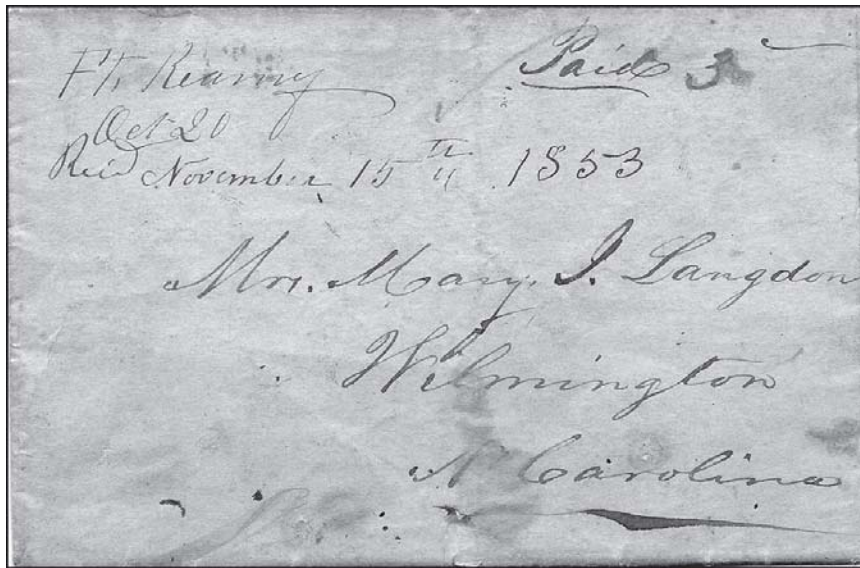 Ft. Kearny
Paid 3
Oct 20
Recd November 15th 1853
Mrs. Mary J. Langdon
Wilmington
N Carolina